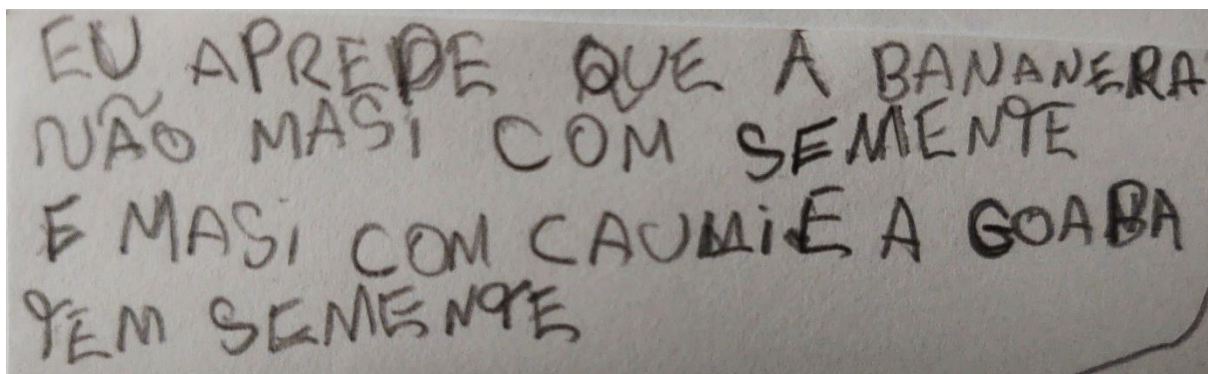 EU APREDE QUE A BANANERA
NÃO MASI COM SEMENTE
E MASI COM CAUMI E A GOABA
TEM SEMENTE